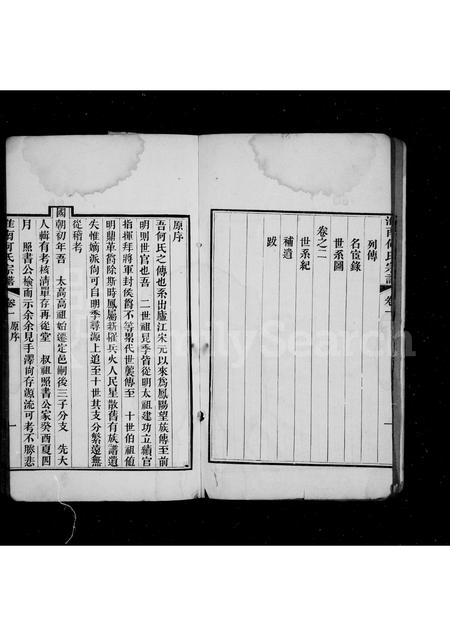 列傳
名宦錄
世系圖
卷之二
世系紀
補遺
跋
原序
吾何氏之傳也系出廬江宋元以來爲鳳陽望族傳至前
明則世官也吾 二世祖兄季皆從明太祖建功立績官
指揮拜將軍封侯爵不等累代世襲傳至 十世伯祖值
明鼎革爵除斯時鳳屬新罹兵火人民星散舊有族譜遺
失惟嫡派尚可自明季尋源上追至十世其支分繁遠無
從稽考
國朝初年吾 太高高祖始遷定邑嗣後三子分支 先大
人輯有考核清單存再從堂 叔祖照書公家癸酉夏四
月 照書公檢南示余余見手澤尚存源流可考不勝悲
淮南何氏宗譜 卷一 原序